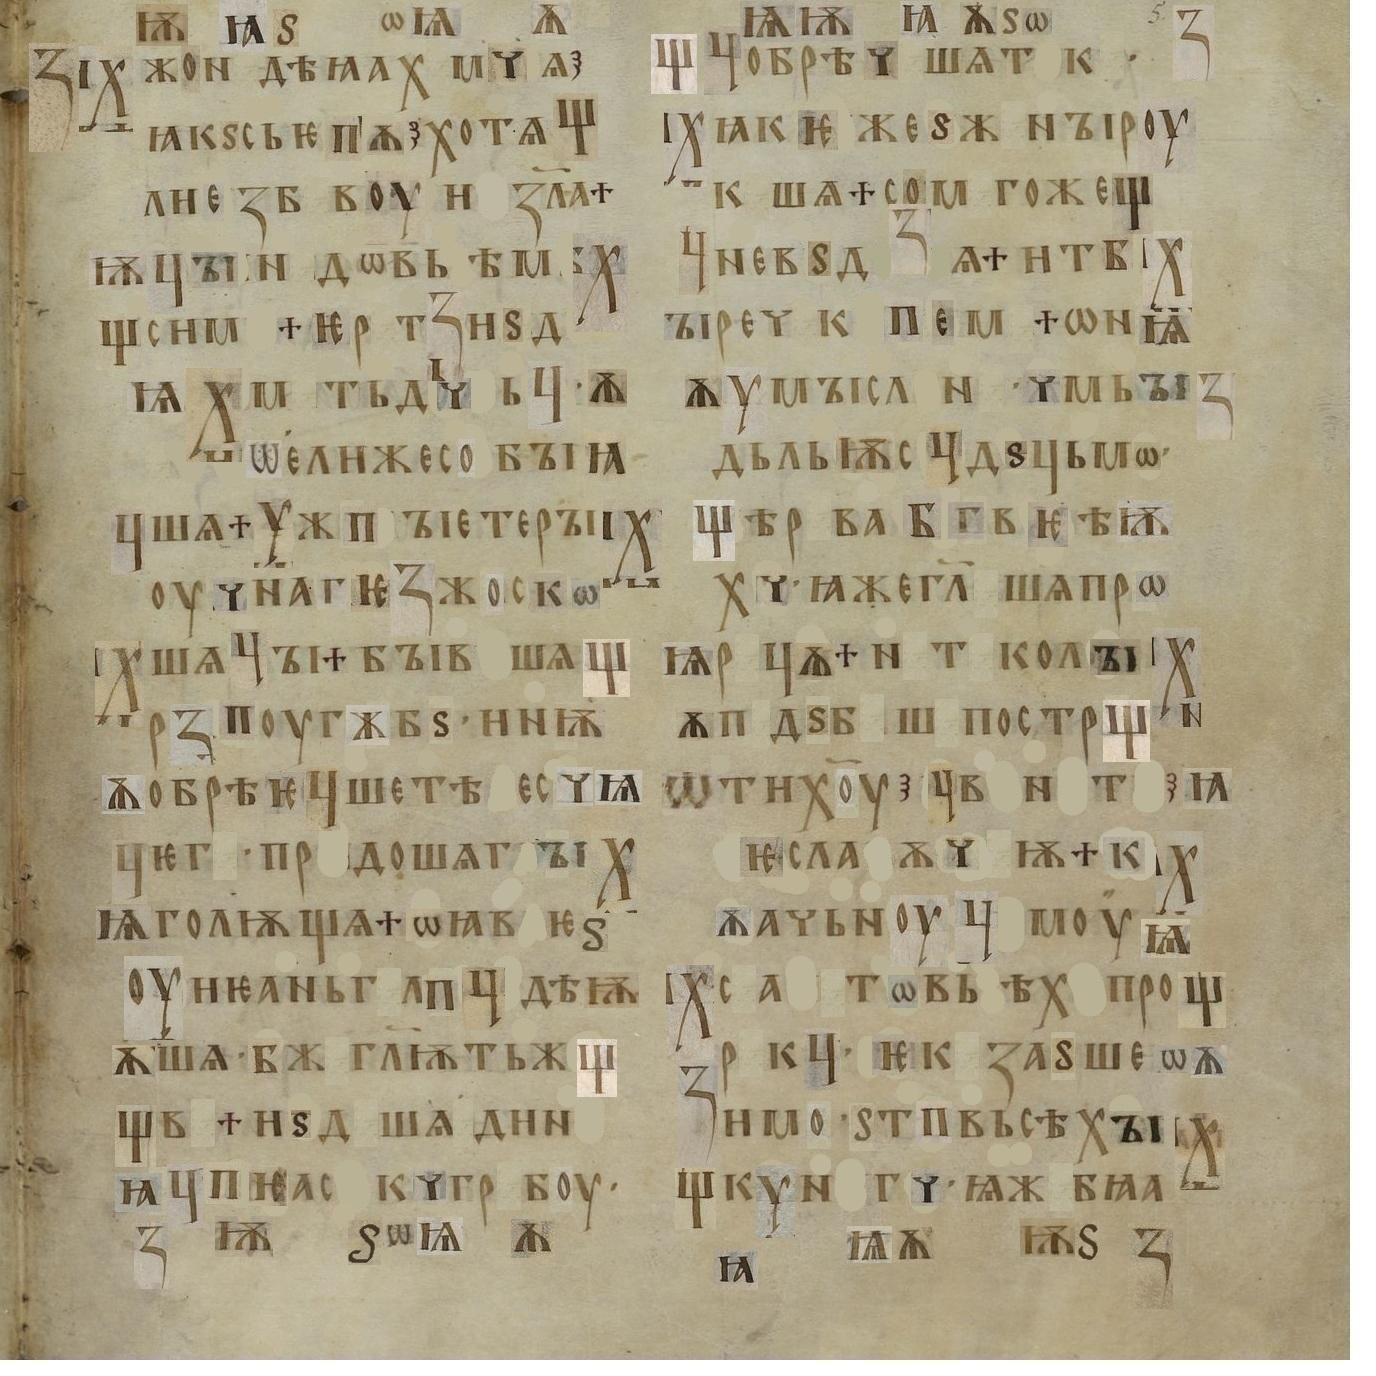 Ѭ Ꙗ Ѕ ѡ Ѩ Ѫ
Ꙁ ІХ ЖОН ДѢꙖАХ МꙊѦꙁ
ꙖКЅСЬѤПѪꙁХОТѦЩ
ЛНЕ ꙀБ ВОУ Н ꙀЛА+
ѬЦЪІН ДѠВЬ ѢМ БХ
ЩСНМ +ѤР ТꙀНЅД
Ꙗ ХМ ТЬДѴ ЬЧ·Ѫ
ѾЕЛНЖЕСО БЪІꙖ
ЦШѦ+УЖП ЪІЕТЕРЪІІХ
ОУѴНАГѤꙀЖОСКѠ
ІХШѦЧЪІ+БЪІВ ШѦЩ
РꙀПОУГЖБЅ·ННѬ
ѪОБРѢѤЧШЕТѢ ЕСѴꙖ
ЦѤГ ·ПР ДОШѦГ ЪІХ
ѨГОЛѬЩѦ+ѠꙖВ ѤЅ
ОУНѤАНЬГ ЛПЧДѢѬ
ѪШѦ·БЖ ГЛѬТЬЖЩ
ЩВ +НЅД ШѦ ДНН
ꙖЦПѤАС КѴГР БОУ·
Ꙁ Ѭ ЅѠѨ Ѫ
Ѭ Ѭ Ꙗ Ѫ Ѕ ѡ Ꙁ
ЩЧОБРѢѴ ШѦТ К ·
ІХꙖКѤ ЖЕЅЖ НЪІРОУ
К ШѦ+СОМ ГОЖЕЩ
ЧНЕВЅДꙀ Ѧ+НТБІХ
ЪІРЕѴ К ПЕМ +ѠНѨ
ѪУМЪІСЛ Н ·ѴМЬЪІꙀ
ДЬЛЬѬСЧДЅЦЬМѠ·
ЩѢР ВА БГВ ѤѢѬ
ХѴ·ꙖЖЕГЛ ШѦПРѠ
ѨР ЦѪ+Н Т КОЛЪІІХ
ѪП ДЅБ Ш ПОСТРЩ Н
ѾТНХОУꙁ ЧВ Н Т ꙁꙖ
ѤСЛА ѪѴ Ѭ+КІХ
ѪАѴЬНОУ Ч МОУѨ
ІХС А ТѠВЬ ѢХ ПРОЩ
Р КЧ· ѤК ꙀАЅШЕѠѪ
ꙀНМО·ЅТПВЬСѢХЪІІХ
ЩКУН ГѴ·ꙖЖ БꙖА
Ꙗ Ѭ Ѫ Ѭ Ѕ Ꙁ